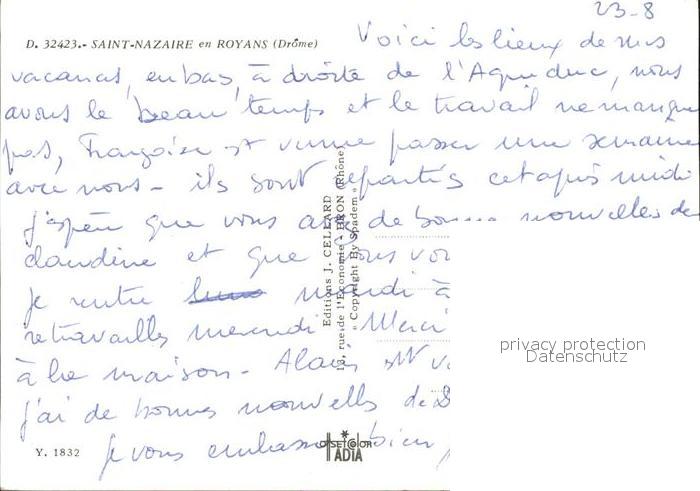 23-8
D. 32423.- SAINT-NAZAIRE en ROYANS (Drôme)
Voici les lieux de mes
vacances, en bas, à droite de l'Aqueduc, nous
avons le beau temps et le travail ne manque
pas, Françoise est venue passer une semaine
avec nous - ils sont repartis cet après midi
j'espère que vous avez de bonnes nouvelles de
claudine et que vous vou
Je rentre mardi à
retravailler mercredi. Merci
à la maison - Alain est v
j'ai de bonnes nouvelles de
Je vous embrasse bien
Editions J. CELLARD
12, rue de l'Economie - BRON (Rhône)
« Copyright By Spadem »
privacy protection
Datenschutz
Y. 1832
OFFSETCOLOR
ADIA